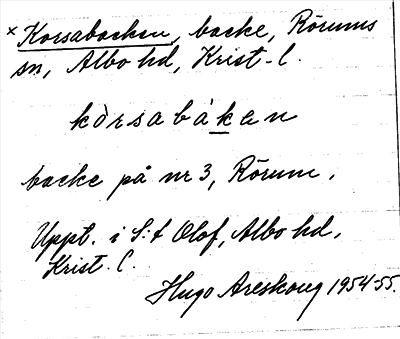 × Korsabacken, backe, Rörums
sn, Albo hd, Krist. l.
kòrsabàken
backe på nr 3, Rörum.
Uppt. i S:t Olof, Albo hd,
Krist. l.
Hugo Areskoug 1954-55.